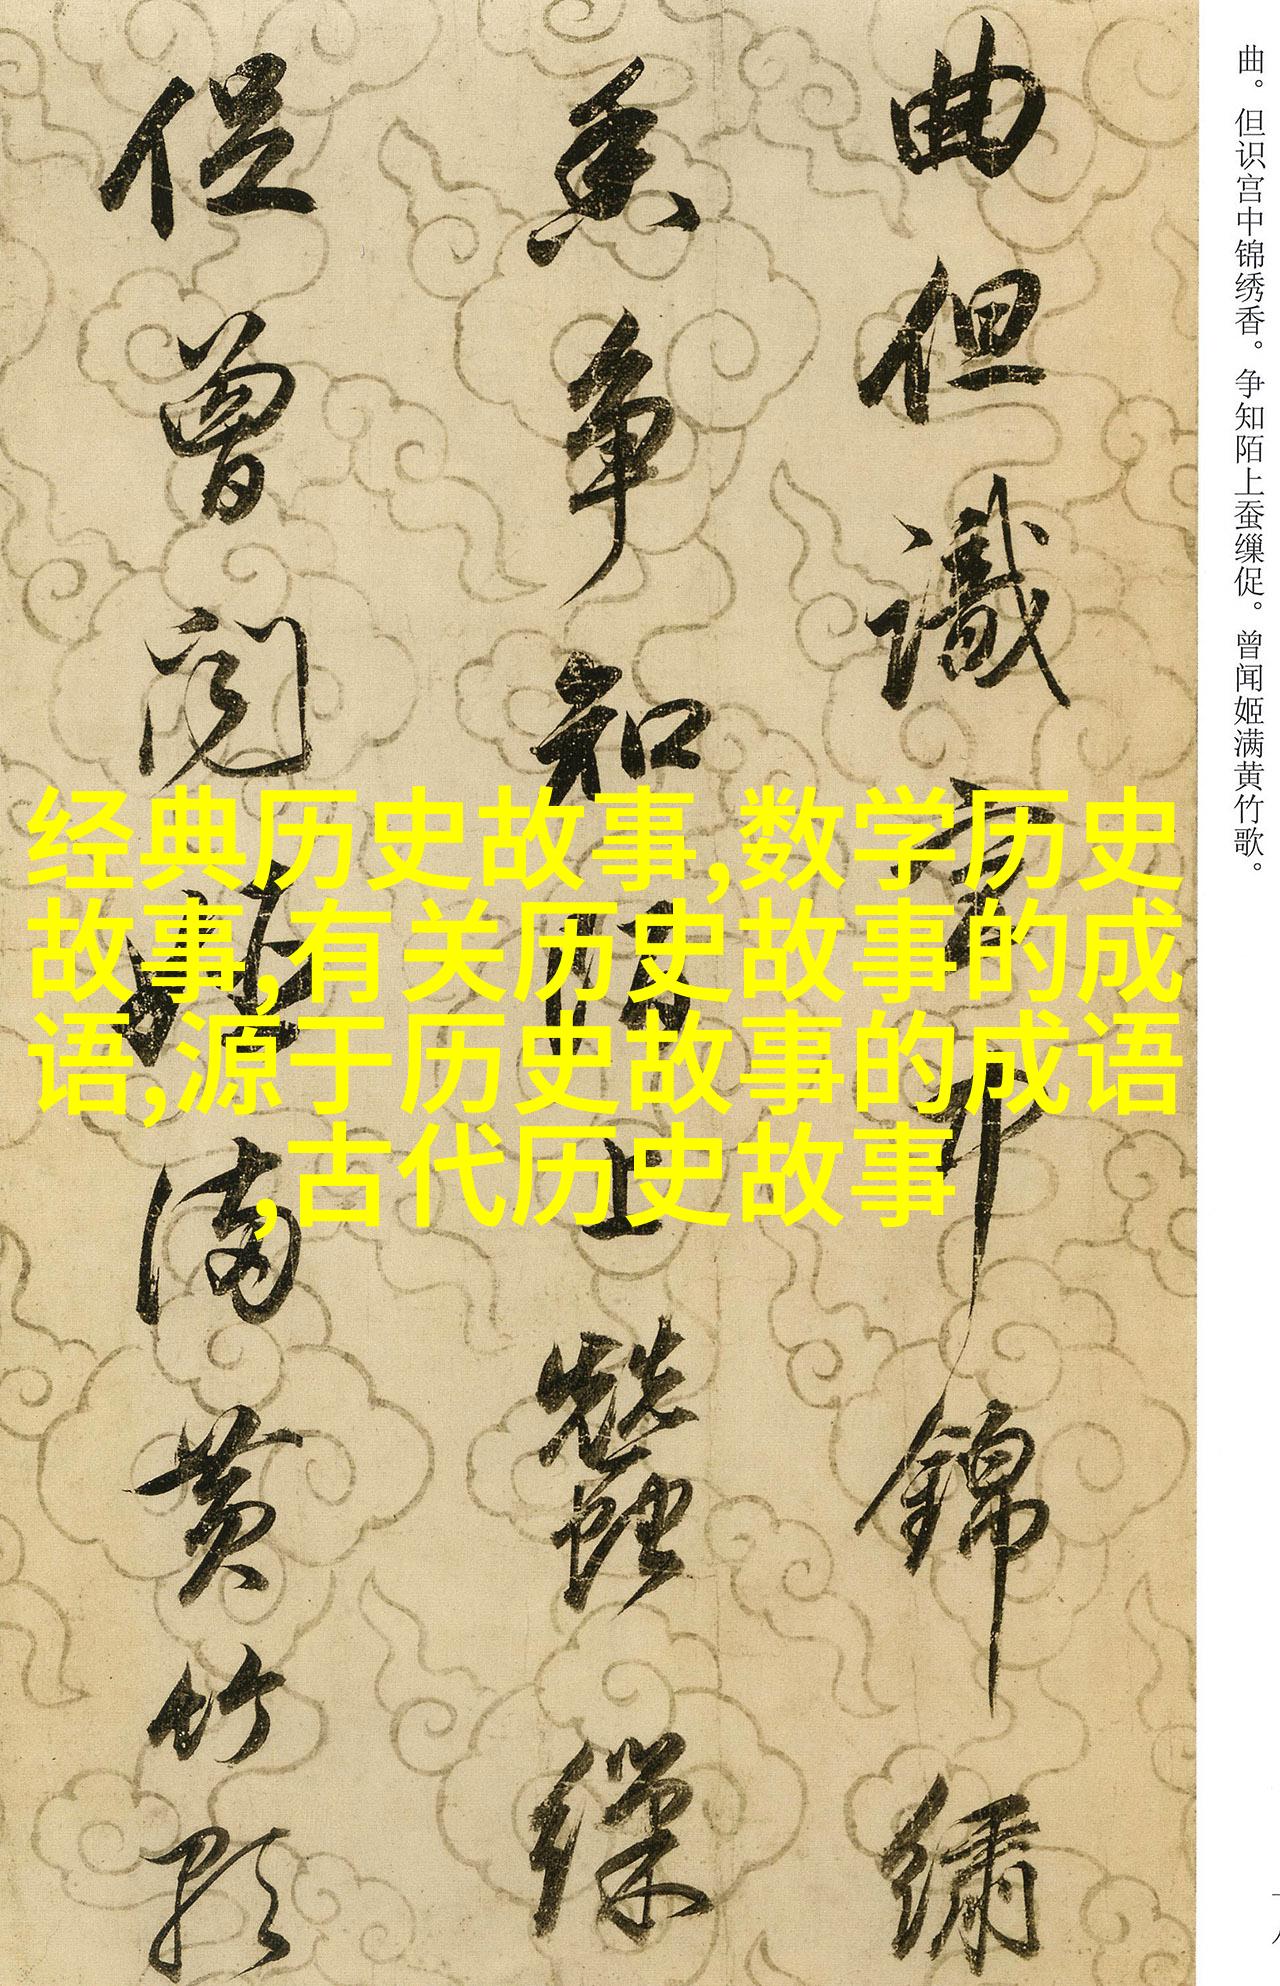 曲。但识宫中锦绣香。争知陌上蚕缫促。曾闻姬满黄竹歌。
曲但識宮中錦繡
香争知陌上蠶繅
促曾闻姬满黄竹歌
经典历史故事,数学历史
故事,有关历史故事的成
语,源于历史故事的成语
,古代历史故事